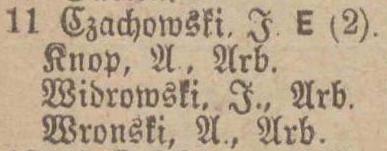 11 Czachowski. J. E (2).
Knop, A., Arb.
Widrowski, J., Arb.
Wronski, A., Arb.